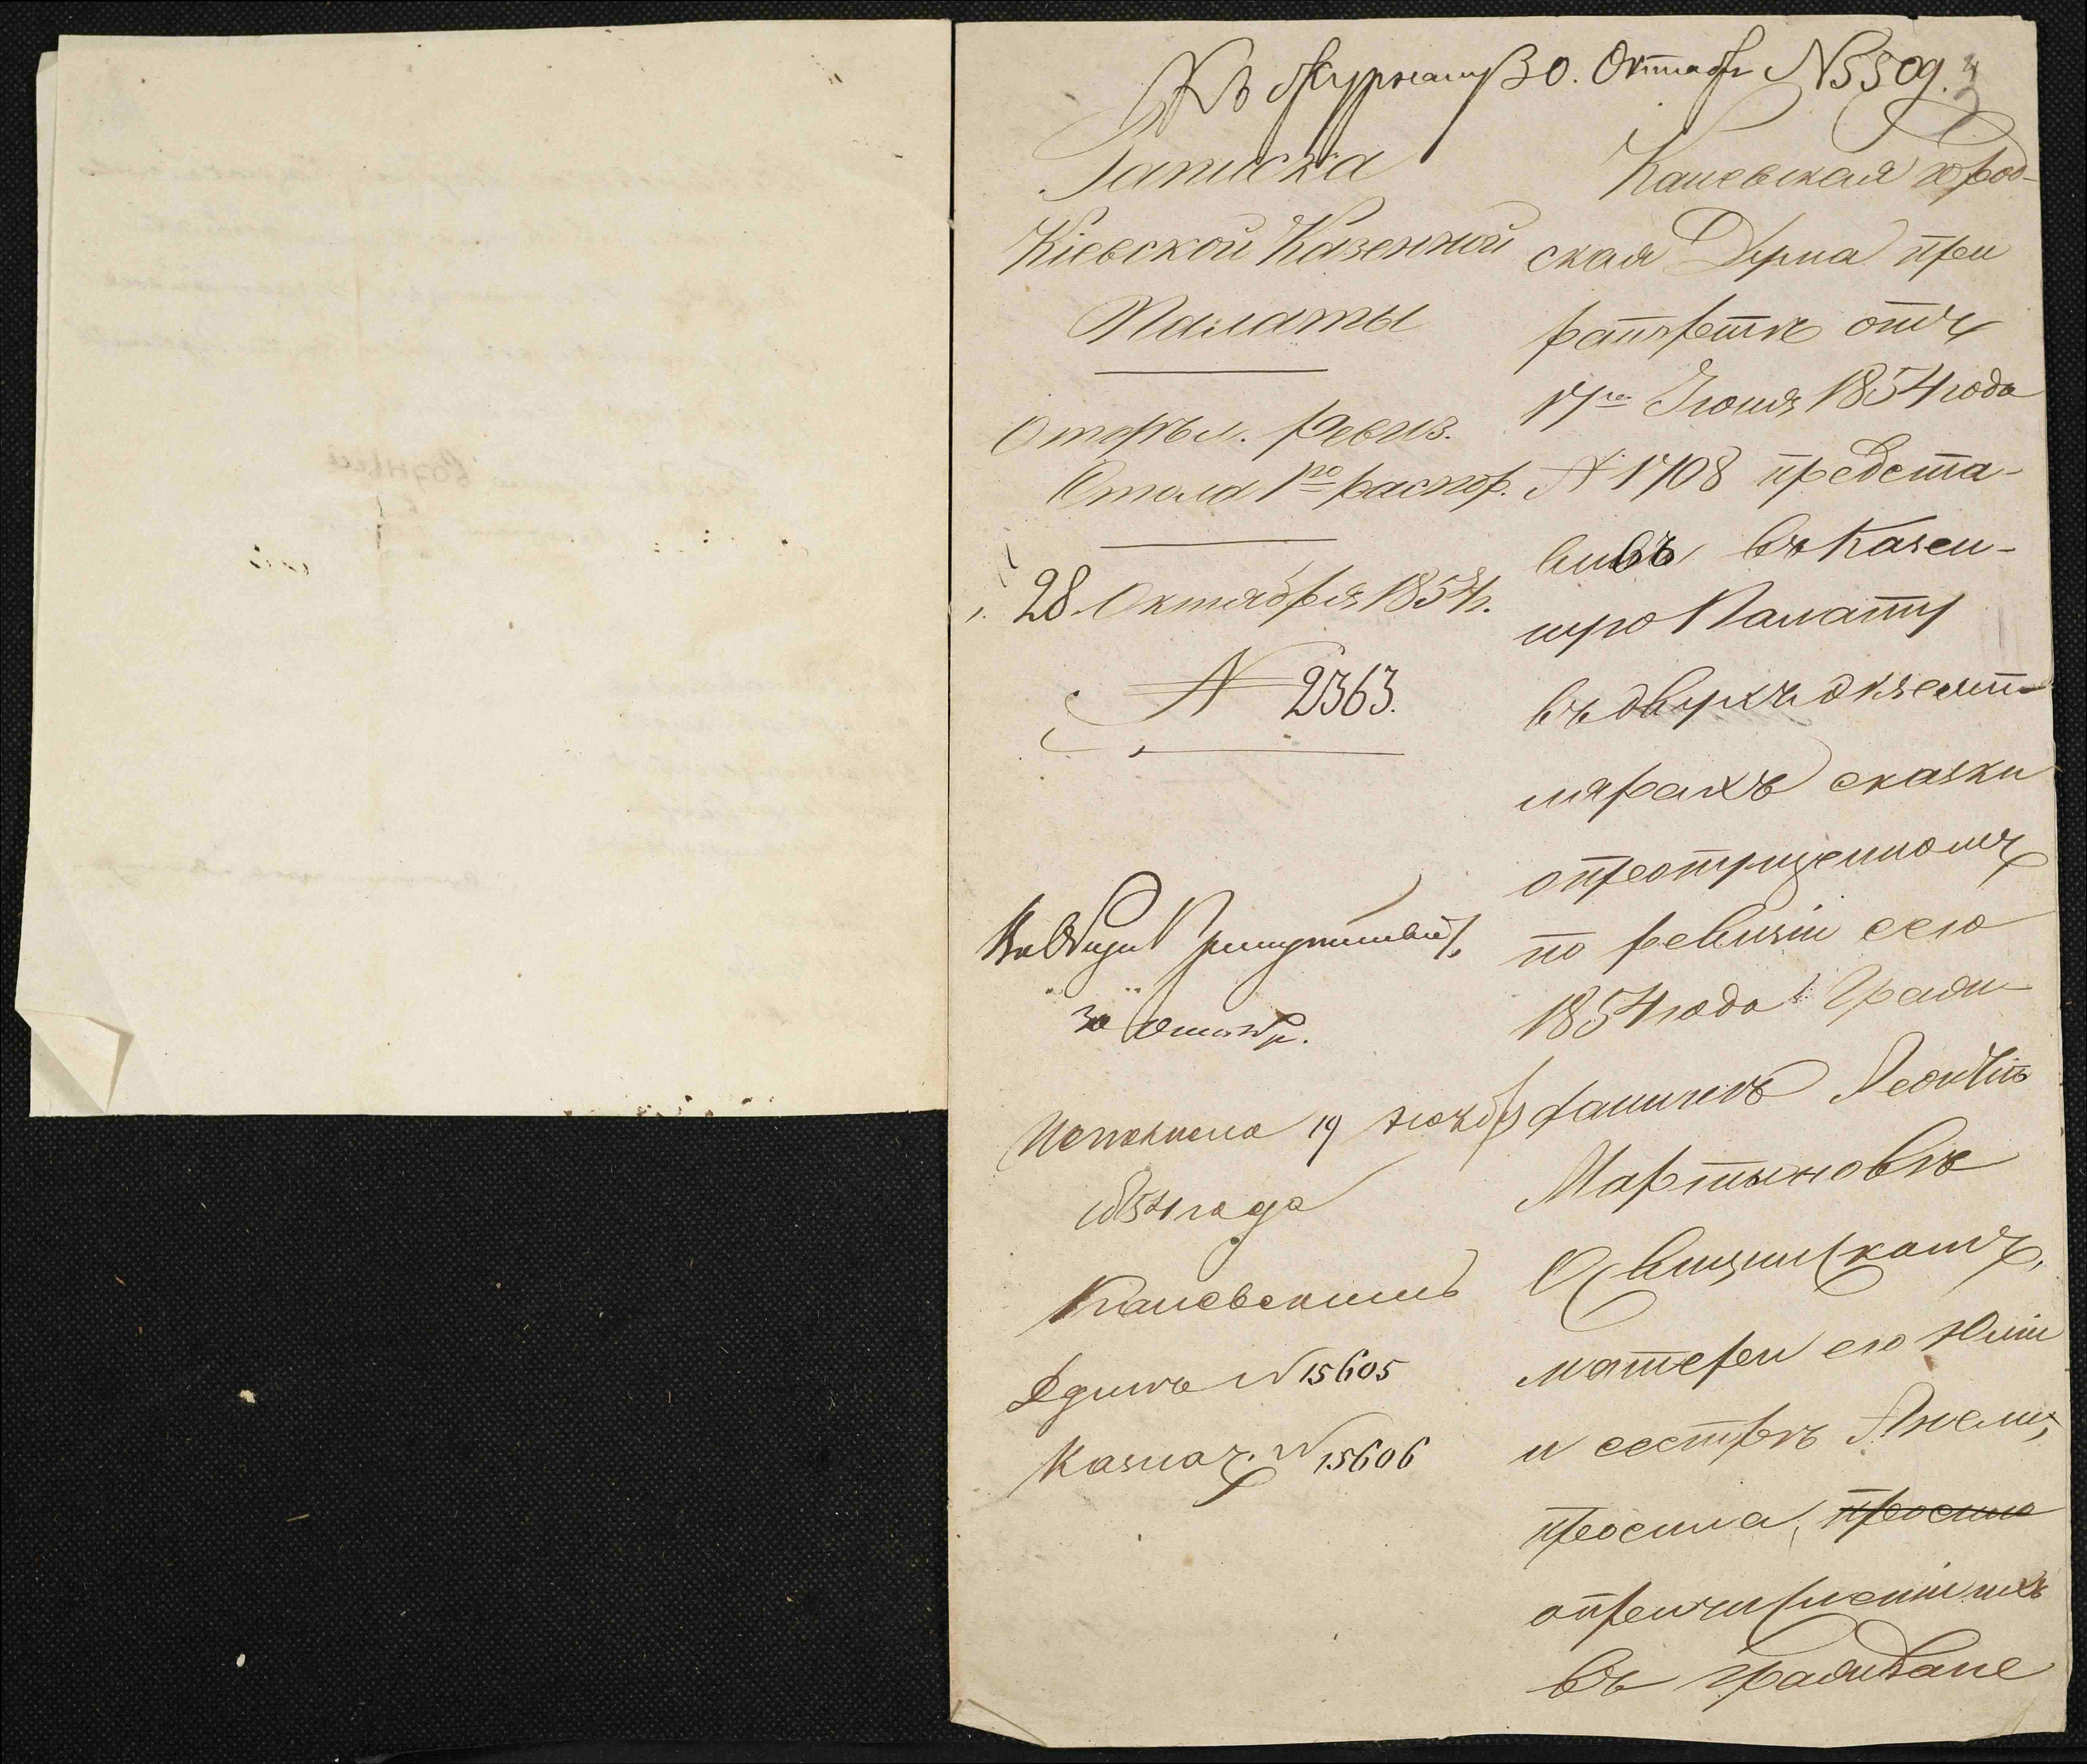 Къ Журналу 30. Октября № 5509.
Записка
Кіевской Казенной
Палаты
Отдѣл. Ревиз.
Стола 1го распор.
28 Октября 1854 г.
№ 2363.
30 Октяб.
Исполнено 19 ноября
1854 года
Каневскимъ
Думѣ № 15605
Казнач. № 15606
Каневская город-
ская Дума при
рапортѣ отъ
17го Іюня 1854 года
№ 1708 предста-
вивъ въ Казен-
ную Палату
въ двухъ экземп-
лярахъ сказки
о пропущенномъ
по ревизіи сего
1854 года Граж-
данинѣ Леонтіѣ
Мартыновѣ
матери его Юліи
и сестрѣ Анжели,
просила, просила
о причисленіи ихъ
въ граждане